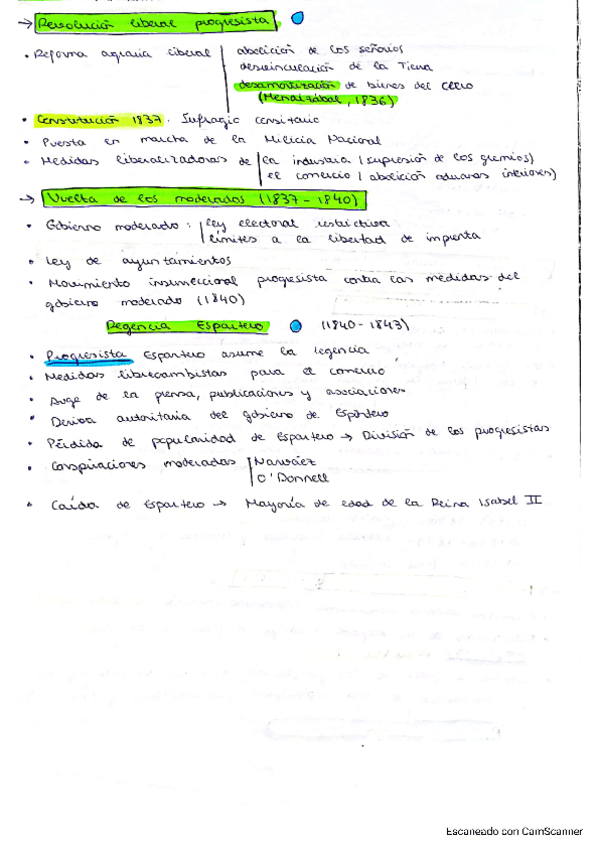 → Revolución liberal progresista
• Reforma agraria liberal | abolición de los señoríos
desvinculación de la Tierra
desamortización de bienes del clero
(Mendizábal, 1836)
• Constitución 1837. Sufragio censitario
• Puesta en marcha de la Milicia Nacional
• Medidas liberalizadoras de | la industria (supresión de los gremios)
el comercio (abolición aduanas interiores)
→ Vuelta de los moderados (1837 - 1840)
• Gobierno moderado: | ley electoral restrictiva
límites a la libertad de imprenta
• Ley de ayuntamientos
• Movimiento insurreccional progresista contra las medidas del
gobierno moderado (1840)
Regencia Espartero (1840 - 1843)
• Progresista Espartero asume la regencia
• Medidas librecambistas para el comercio
• Auge de la prensa, publicaciones y asociaciones
• Deriva autoritaria del gobierno de Espartero
• Pérdida de popularidad de Espartero → División de los progresistas
• Conspiraciones moderadas | Narváez
O'Donnell
• Caída de Espartero → Mayoría de edad de la Reina Isabel II
Escaneado con CamScanner